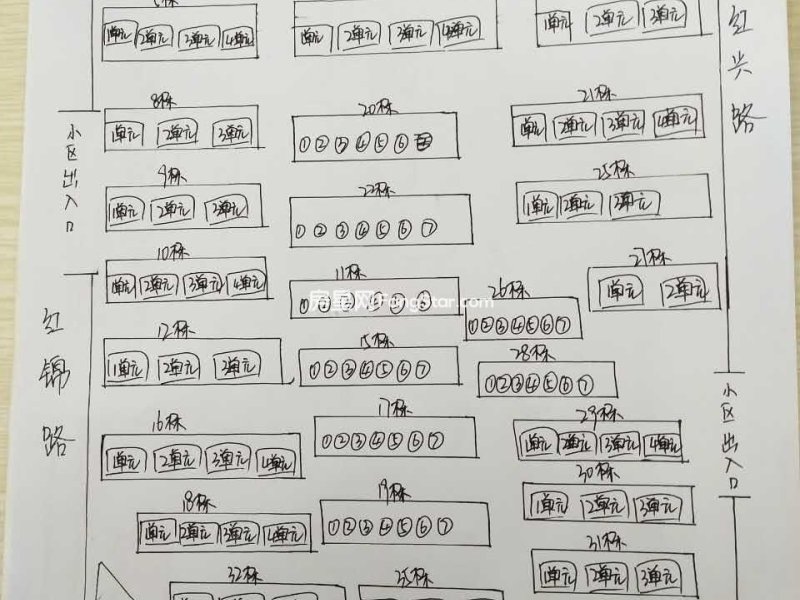 1单元 2单元 3单元 4单元
1单元 2单元 3单元 4单元
1单元 2单元 3单元
红兴路
8栋
1单元 2单元 3单元
20栋
① ② ③ ④ ⑤ ⑥
21栋
1单元 2单元 3单元 4单元
小区出入口
9栋
1单元 2单元 3单元
22栋
① ② ③ ④ ⑤ ⑥ ⑦
25栋
1单元 2单元 3单元
10栋
1单元 2单元 3单元 4单元
11栋
① ② ③ ④ ⑤ ⑥
房星网 FangStar.com
26栋
① ② ③ ④ ⑤ ⑥ ⑦
27栋
1单元 2单元
红锦路
12栋
1单元 2单元 3单元
15栋
① ② ③ ④ ⑤ ⑥ ⑦
28栋
① ② ③ ④ ⑤ ⑥ ⑦
小区出入口
16栋
1单元 2单元 3单元 4单元
17栋
① ② ③ ④ ⑤ ⑥ ⑦
29栋
1单元 2单元 3单元 4单元
18栋
1单元 2单元 3单元 4单元
19栋
① ② ③ ④ ⑤ ⑥ ⑦
30栋
1单元 2单元 3单元
31栋
1单元 2单元 3单元
32栋
35栋